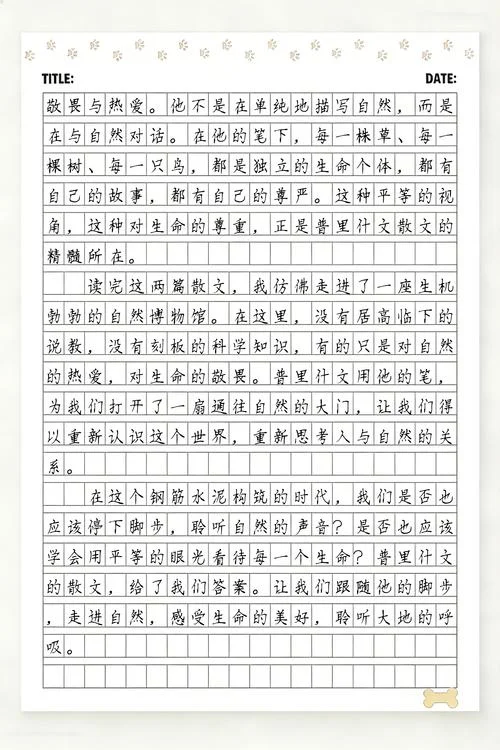 TITLE: DATE:
敬畏与热爱。他不是在单纯地描写自然，而是
在与自然对话。在他的笔下，每一株草、每一
棵树、每一只鸟，都是独立的生命个体，都有
自己的故事，都有自己的尊严。这种平等的视
角，这种对生命的尊重，正是普里什文散文的
精髓所在。
读完这两篇散文，我仿佛走进了一座生机
勃勃的自然博物馆。在这里，没有居高临下的
说教，没有刻板的科学知识，有的只是对自然
的热爱，对生命的敬畏。普里什文用他的笔，
为我们打开了一扇通往自然的大门，让我们得
以重新认识这个世界，重新思考人与自然的关
系。
在这个钢筋水泥构筑的时代，我们是否也
应该停下脚步，聆听自然的声音？是否也应该
学会用平等的眼光看待每一个生命？普里什文
的散文，给了我们答案。让我们跟随他的脚步
，走进自然，感受生命的美好，聆听大地的呼
吸。